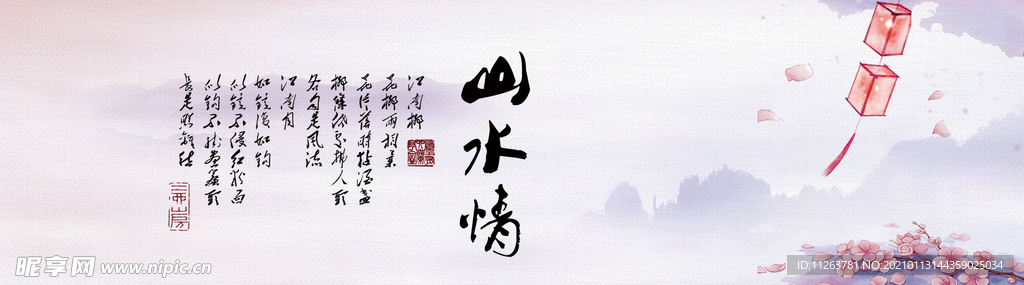 山水情
江南柳
花柳两相柔
花片落时粘酒盏
柳条低处拂人头
各自是风流
江南月
如镜复如钩
似镜不侵红粉面
似钩不挂画帘头
长是照离愁
昵享网 www.nipic.cn
ID:11263781 NO:20210113144359025034